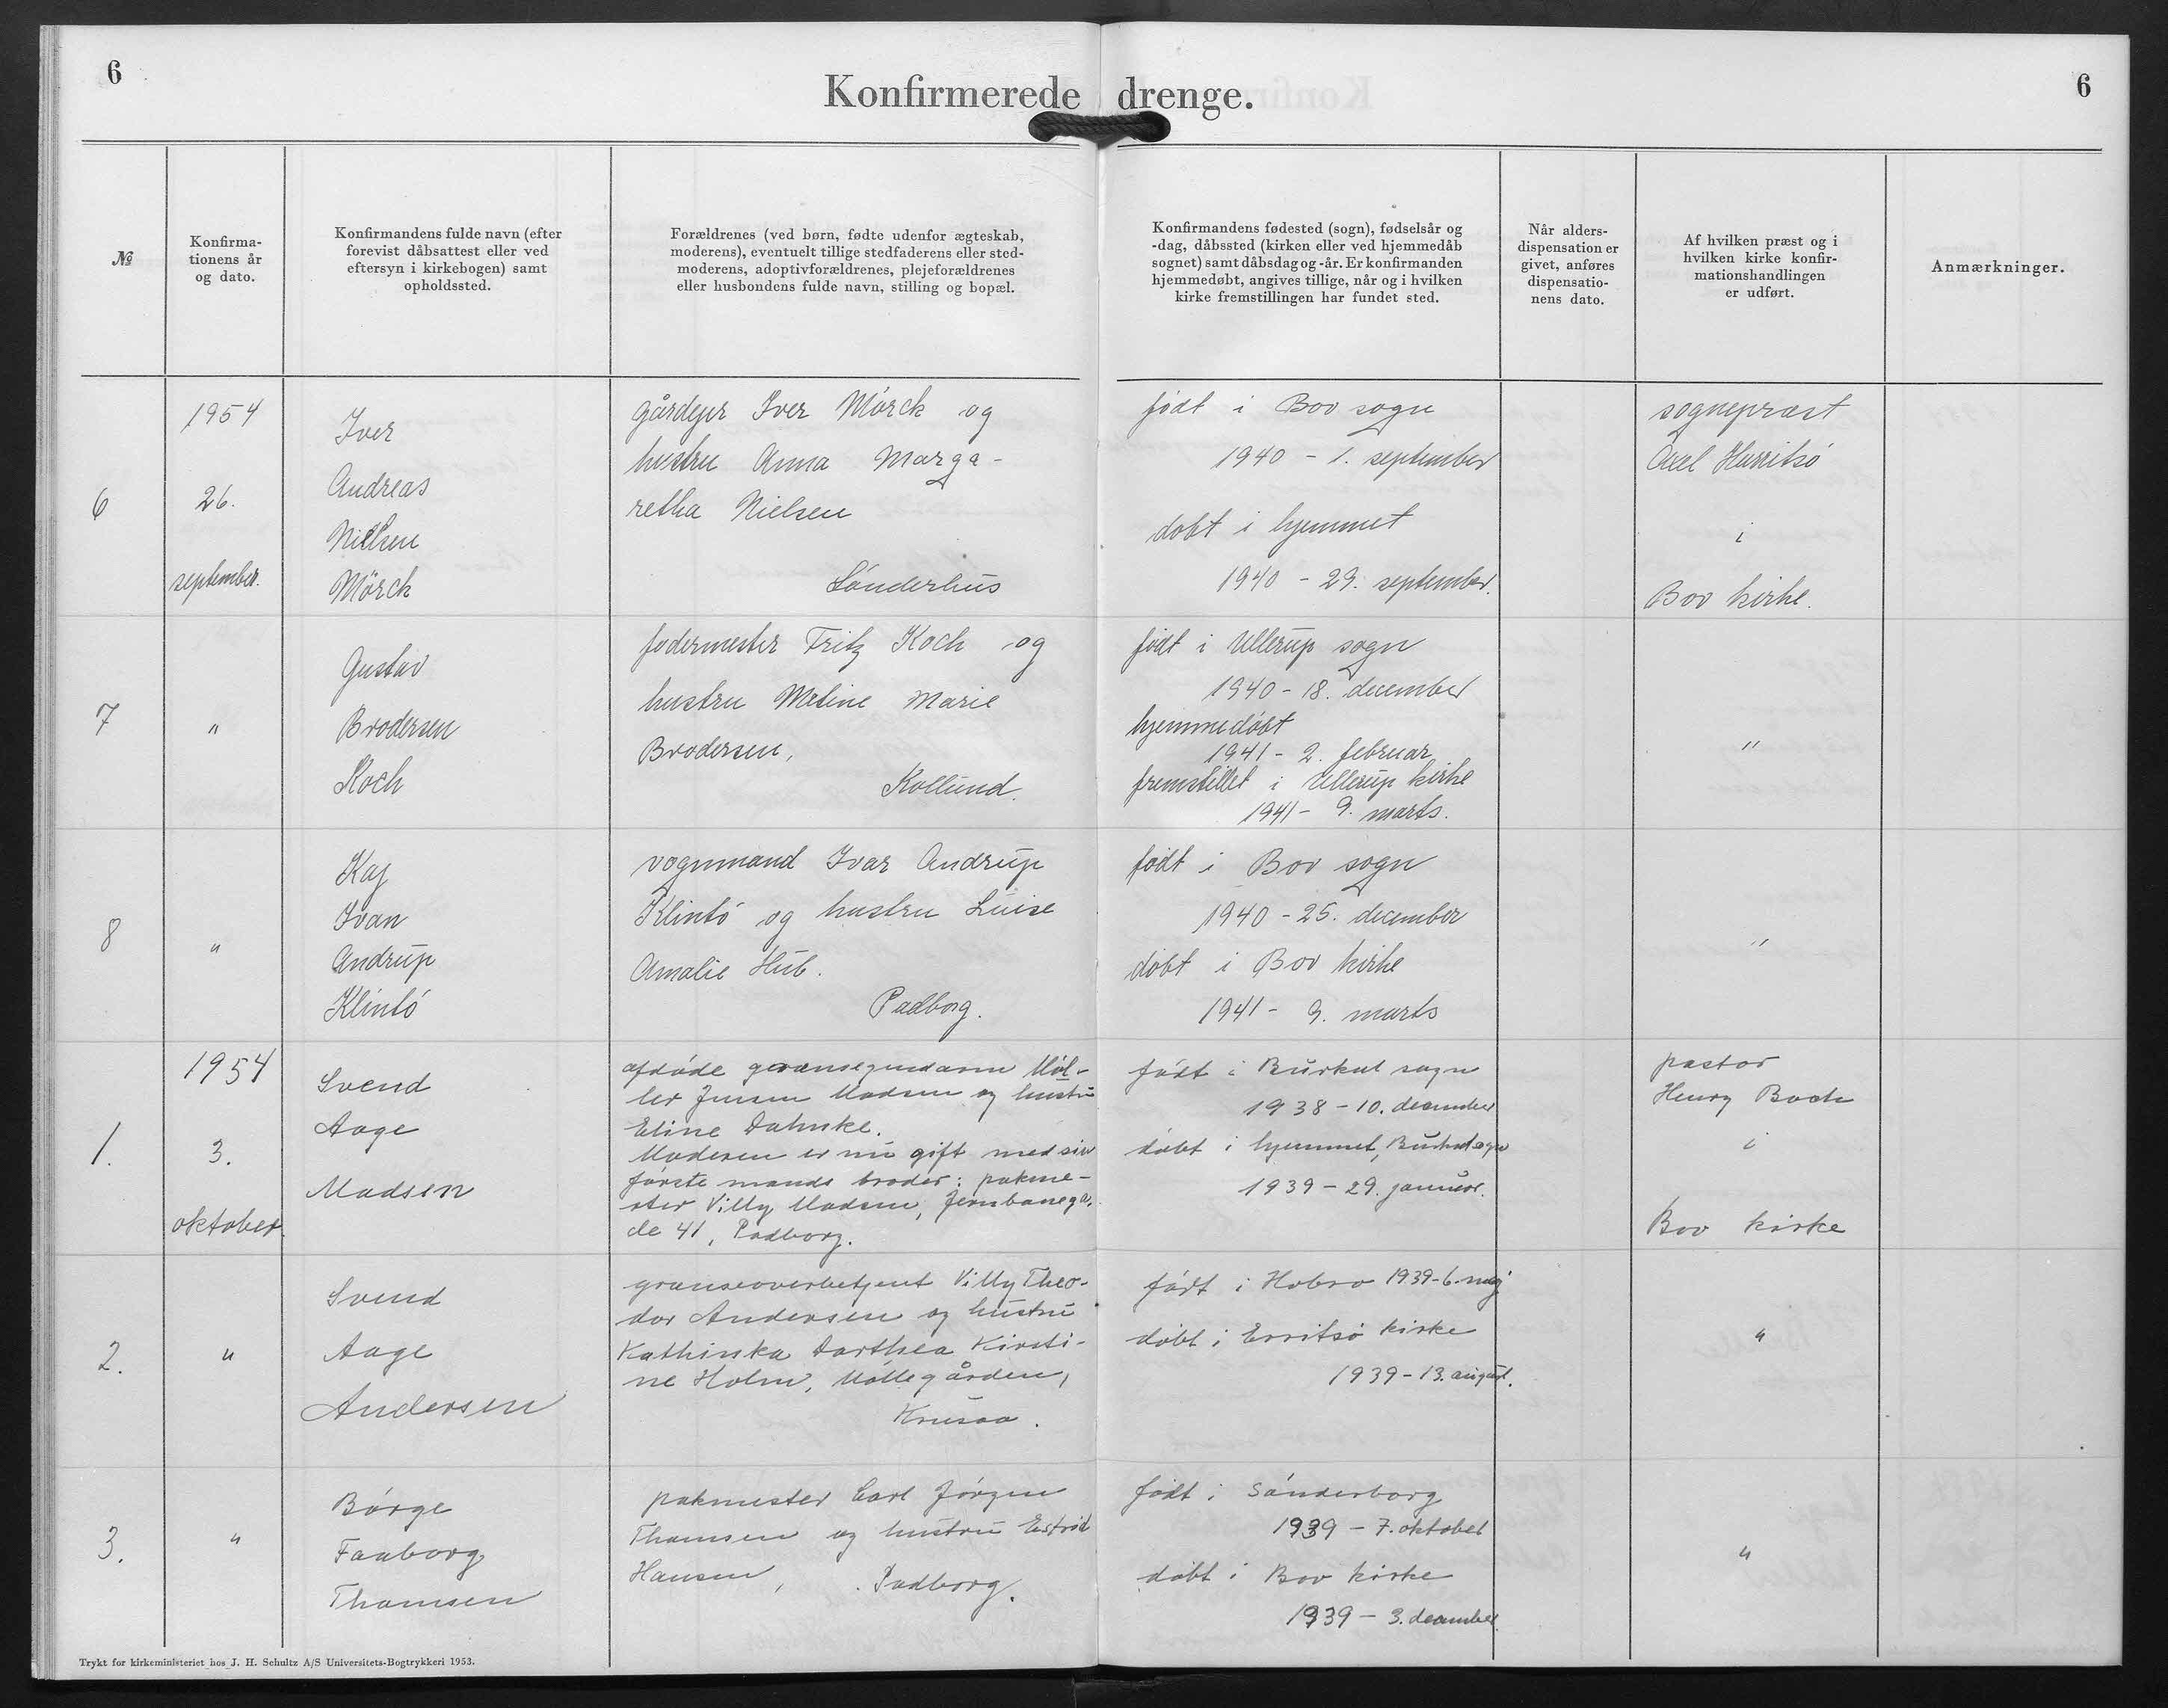 6
Konfirmerede drenge.
6
№
Konfirma-
tionens år
og dato.
Konfirmandens fulde navn (efter
forevist dåbsattest eller ved
eftersyn i kirkebogen) samt
opholdssted.
Forældrenes (ved børn, fødte udenfor ægteskab,
moderens), eventuelt tillige stedfaderens eller sted-
moderens, adoptivforældrenes, plejeforældrenes
eller husbondens fulde navn, stilling og bopæl.
Konfirmandens fødested (sogn), fødselsår og
-dag, dåbssted (kirken eller ved hjemmedåb
sognet) samt dåbsdag og -år. Er konfirmanden
hjemmedøbt, angives tillige, når og i hvilken
kirke fremstillingen har fundet sted.
Når alders-
dispensation er
givet, anføres
dispensatio-
nens dato.
Af hvilken præst og i
hvilken kirke konfir-
mationshandlingen
er udført.
Anmærkninger.
6
1954
26.
september.
Iver
Andreas
Nielsen
Mörck
gårdejer Iver Mörck og
hustru Anna Marga-
retha Nielsen
Sønderhus
født i Bov sogn
1940 - 1. september
døbt i hjemmet
1940 - 29. september.
sognepræst
Axel Harritsø
i
Bov kirke.
7
"
Gustav
Brodersen
Koch
fodermester Fritz Koch og
hustru Metine Marie
Brodersen,
Kollund.
født i Ullerup sogn
1940 - 18. december
hjemmedøbt
1941 - 2. februar
fremstillet i Ullerup kirke
1941 - 9. marts.
"
8
"
Kaj
Ivan
Andrup
Klintø
vognmand Ivar Andrup
Klintø og hustru Luise
Amalie Hub.
Padborg.
født i Bov sogn
1940 - 25. december
døbt i Bov kirke
1941 - 9. marts
"
1.
1954
3.
oktober.
Svend
Aage
Madsen
afdøde grænsegendarm Møl-
ler Jensen Madsen og hustru
Eline Dahnke.
Moderen er nu gift med sin
første mands broder: pakme-
ster Villy Madsen, Jernbanega-
de 41, Padborg.
født i Burkal sogn
1938 - 10. december
døbt i hjemmet, Burkal sogn
1939 - 29. januar.
pastor
Henry Bach
i
Bov kirke
2.
"
Svend
Aage
Andersen
grænseoverbetjent Villy Theo-
dor Andersen og hustru
Kathinka Dorthea Kirsti-
ne Holm, Møllegården,
Krusaa.
født i Hobro 1939-6. maj
døbt i Erritsø kirke
1939 - 13. august.
"
3.
"
Børge
Faaborg
Thomsen
pakmester Carl Jørgen
Thomsen og hustru Estrid
Hansen,
Padborg.
født i Sønderborg
1939 - 7. oktober
døbt i Bov kirke
1939 - 3. december.
"
Trykt for kirkeministeriet hos J. H. Schultz A/S Universitets-Bogtrykkeri 1953.